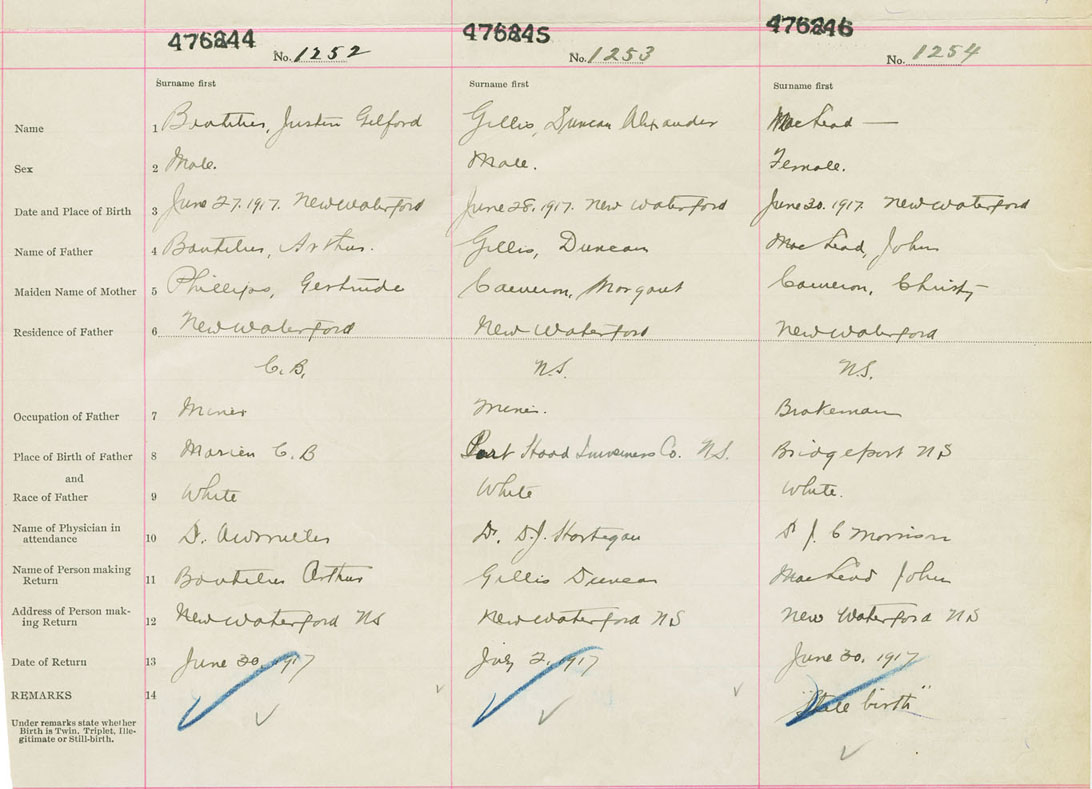 476244 476245 476246
No. 1252 No. 1253 No. 1254
Surname first Surname first Surname first
Name 1 Boutilier, Justin Gilford Gillis, Duncan Alexander MacLeod —
Sex 2 Male. Male. Female.
Date and Place of Birth 3 June 27. 1917. New Waterford June 28. 1917. New Waterford June 30. 1917 New Waterford
Name of Father 4 Boutilier, Arthur. Gillis, Duncan MacLeod, John
Maiden Name of Mother 5 Phillips, Gertrude Cameron, Margaret Cameron, Christy
Residence of Father 6 New Waterford New Waterford New Waterford
C. B. N.S. N.S.
Occupation of Father 7 Miner Miner. Brakeman
Place of Birth of Father 8 C. B Port Hood Inverness Co. N.S. Bridgeport N S
and
Race of Father 9 White White White.
Name of Physician in
attendance 10 D. Dr. D.J. Hartigan D J. C Morrison
Name of Person making
Return 11 Boutilier Arthur Gillis Duncan MacLeod John
Address of Person mak-
ing Return 12 New Waterford N S New Waterford N S New Waterford N S
Date of Return 13 June 30, 1917 July 2, 1917 June 30. 1917
REMARKS 14 "Still birth"
Under remarks state whether
Birth is Twin, Triplet, Ille-
gitimate or Still-birth.